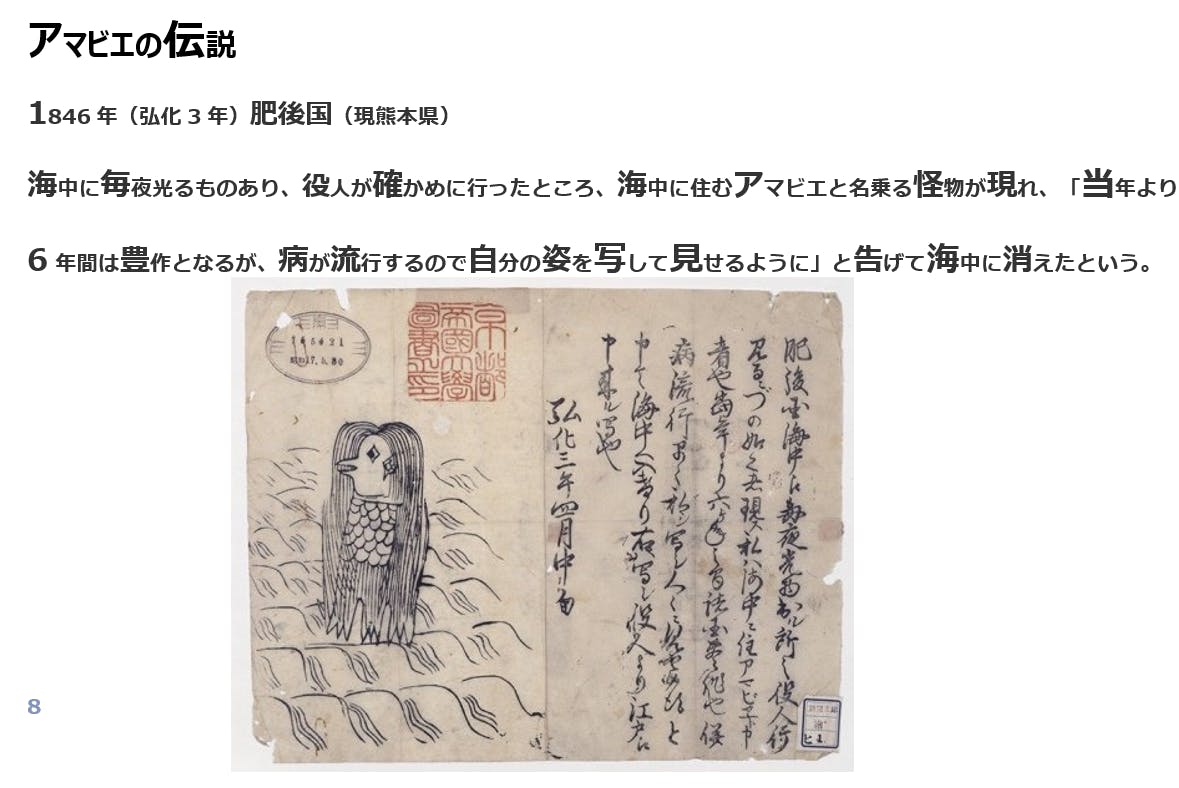 アマビエの伝説
1846 年（弘化 3 年）肥後国（現熊本県）
海中に毎夜光るものあり、役人が確かめに行ったところ、海中に住むアマビエと名乗る怪物が現れ、「当年より
6 年間は豊作となるが、病が流行するので自分の姿を写して見せるように」と告げて海中に消えたという。
肥後国海中え毎夜光物出ル所之役人行
見るニづの如く者現ス私ハ海中ニ住アマビヱト申
者也当年より六ヶ年之間諸国豊作也併
病流行早々私ヲ写シ人々ニ見セ候得と
申て海中へ入けり右写シ役人より江戸え
申来ル写也
弘化三年四月中旬
京都
帝國大學
圖書之印
8